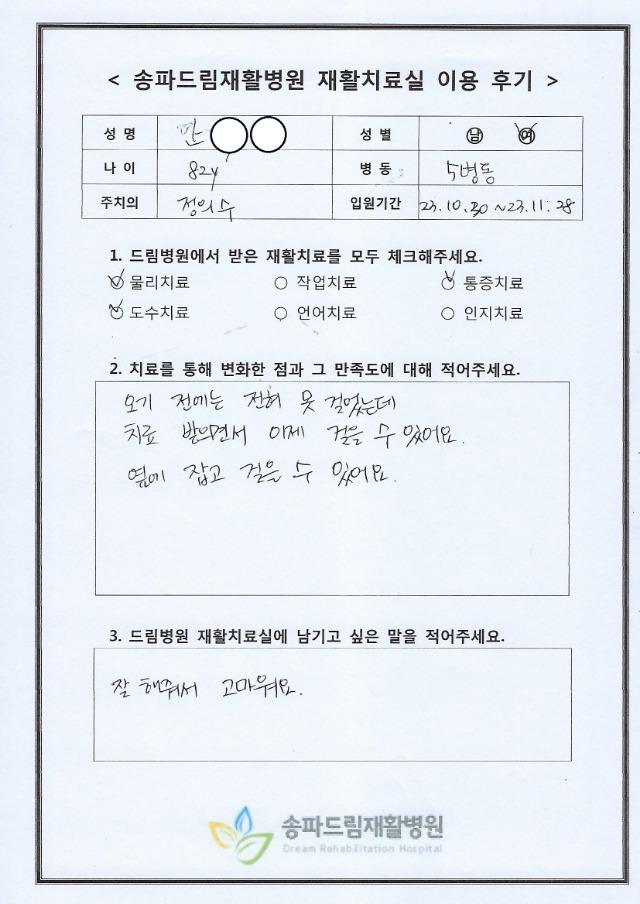 < 송파드림재활병원 재활치료실 이용 후기 >
성 명 성 별 남 여
나 이 82y 병 동 5병동
주치의 정의수 입원기간 23.10.30 ~23.11.28
1. 드림병원에서 받은 재활치료를 모두 체크해주세요.
물리치료 작업치료 통증치료
도수치료 언어치료 인지치료
2. 치료를 통해 변화한 점과 그 만족도에 대해 적어주세요.
오기 전에는 전혀 못 걸었는데
치료 받으면서 이제 걸을 수 있어요.
옆에 잡고 걸을 수 있어요.
3. 드림병원 재활치료실에 남기고 싶은 말을 적어주세요.
잘 해줘서 고마워요.
송파드림재활병원
Dream Rehabilitation Hospital